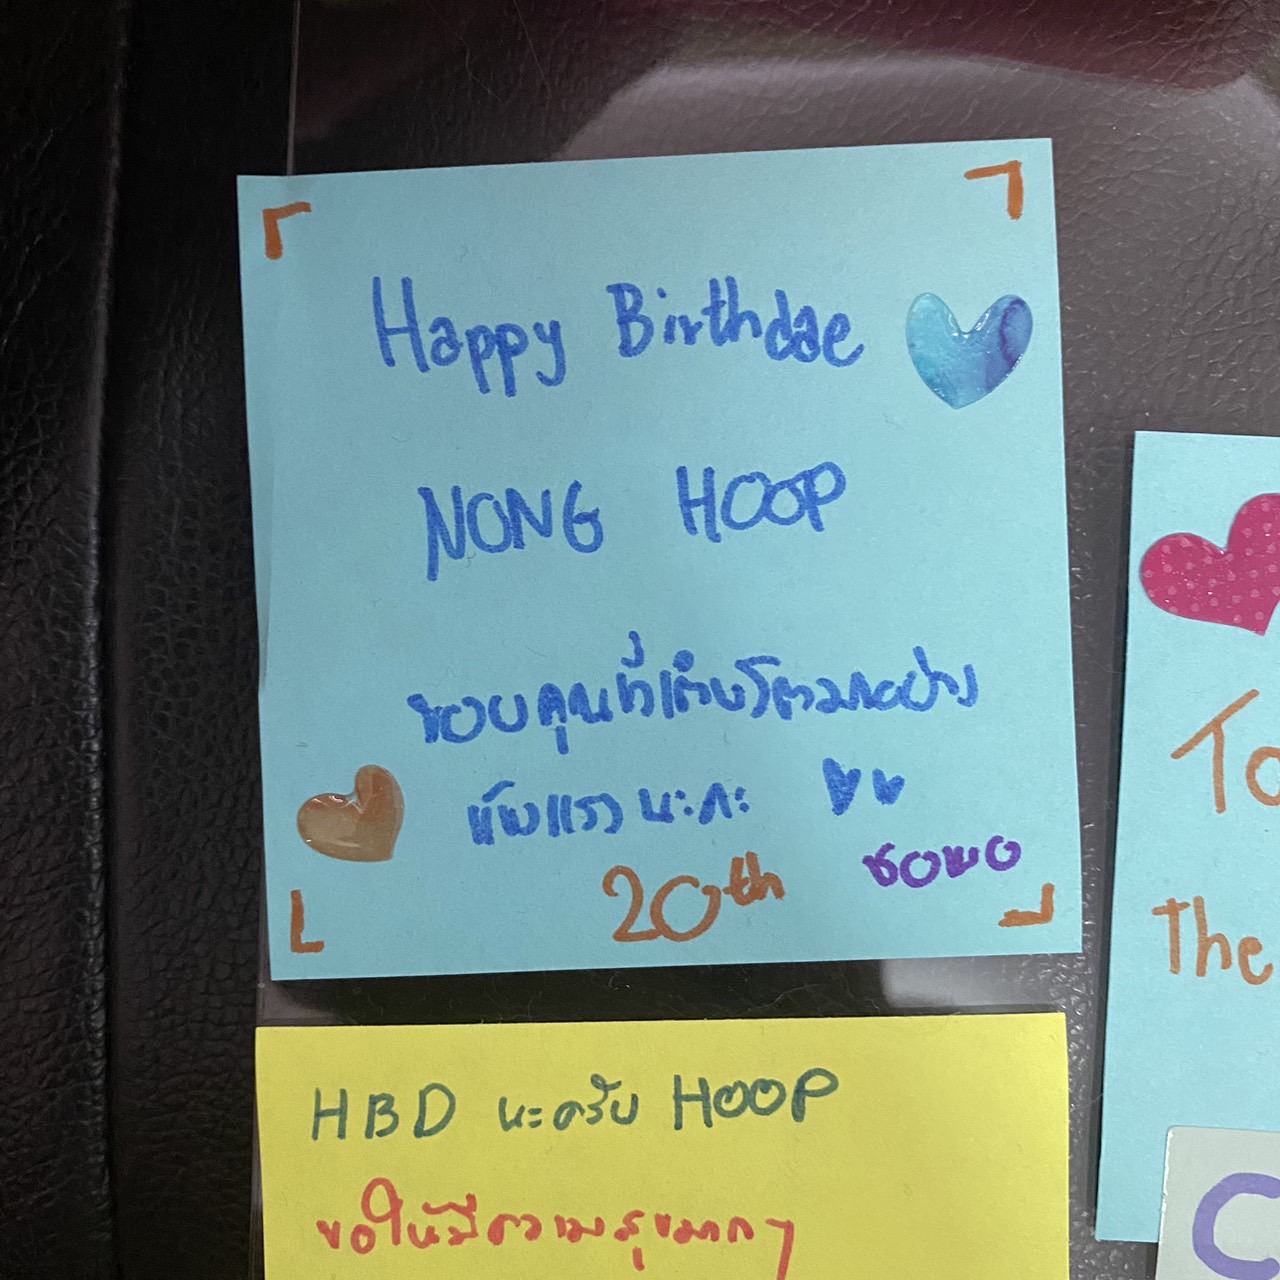 Happy Birthdae
NONG HOOP
ขอบคุณที่เติบโตมาอย่าง
แข็งแรงนะคะ
20th
HBD นะครับ HOOP
ขอให้มีความสุขมากๆ
To
The
C